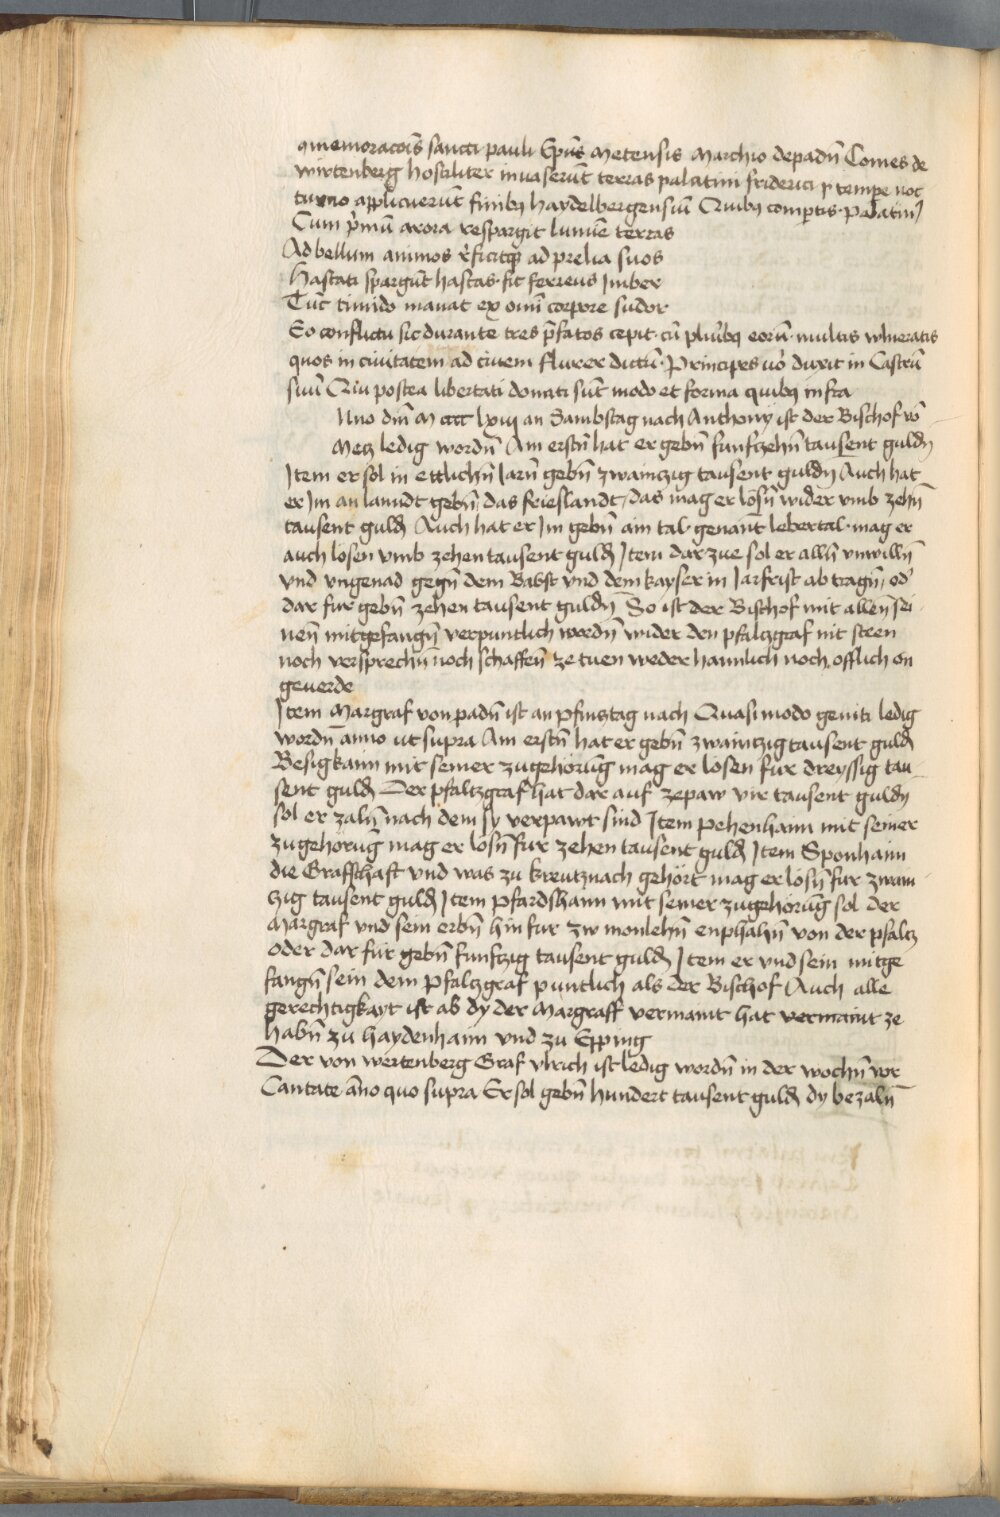 ꝯmemoracōis sancti pauli Ep̄us Metensis Marchio de padn̄ Comes de
wirtenberg hostiliter invaserūt terras palatini friderici ꝑ tempe noc
turno applicuerūt finibꝫ haydelbergensiū Quibꝫ compertis palatin9
Cum p̄mū aurora respargit lumīe terras
Ad bellum animos ad prelia suos
Hastati spargūt hastas fit ferreus Imber
Tūc timido manat ex omī corpore sudor
Eo conflictu sic durante tres p̄fatos cepit cū plurībꝫ eorū multis wlneratis
quos in civitatem ad civem ductū Principes uo duxit in Castrū
suū Qui postea libertati donati sūt modo et forma quibꝫ infra
Uno dm̄ M cccc lxiij an Sambstag nach Anthony ist der Bischof vō
Metz ledig wordn̄ Am erstn̄ hat er gebn̄ funfzehn̄ tausent guldn̄
Item er sol in ettlichn̄ Jarn̄ gebn̄ zwaintzig tausent guldn̄ Auch hat
er Im an lanndt gebn̄ das frieslandt, das mag er lösn̄ wider vmb zehn̄
tausent guld̄ Auch hat er Im gebn̄ ain tal genāt lebertal mag er
auch losen vmb zehen tausent guld̄ Item dar zue sol er alln̄ vnwilln̄
vnd vngenad gegn̄ dem Babst vnd dem kayser in Jarfrist ab tragn̄, od'
dar fur gebn̄ zehen tausent guldn̄ So ist der Bischof mit allen̄ sei
nen̄ mitgefangn̄ verpuntlich wordn̄ wider den pfaltzgraf nit steen
noch versprechn̄ noch schaffen̄ ze tuen weder haimlich noch offlich on
geuerde
Item Margraf von padn̄ ist an pfinstag nach Quasi modo geniti ledig
wordn̄ anno ut supra Am erstn̄ hat er gebn̄ zwaintzig tausent guld̄
Besigkaim mit seiner zugehorūg mag er losen fur dreyssig tau
sent guld̄ Der pfaltzgraf hat dar auf ze paw vir tausent guldn̄
sol er zaln̄ nach dem sy verpawt sind Item pehenhaim mit seiner
zugehorūg mag er losn̄ fur zehen tausent guld̄ Item Sponhaim
die Graffschaft vnd was zu kreutznach gehört mag er losn̄ fur zwain
tzig tausent guld̄ Item pfardshaim mit seiner zugehorūg sol der
Margraf vnd sein erbn̄ hin fur zw monlehn̄ enphahn̄ von der pfaltz
oder dar fur gebn̄ funftzig tausent guld̄ Item er vnd sein mitge
fangn̄ sein dem pfaltzgraf puntlich als der Bischof Auch alle
gerechtigkayt ist ab dy der Margraff vermaint hat vermaint ze
habn̄ zu haydenhaim vnd zu Epping
Der von wertenberg Graf vlrich ist ledig wordn̄ in der wochn̄ vor
Cantate āno quo supra Er sol gebn̄ hundert tausent guld̄ dy bezaln̄